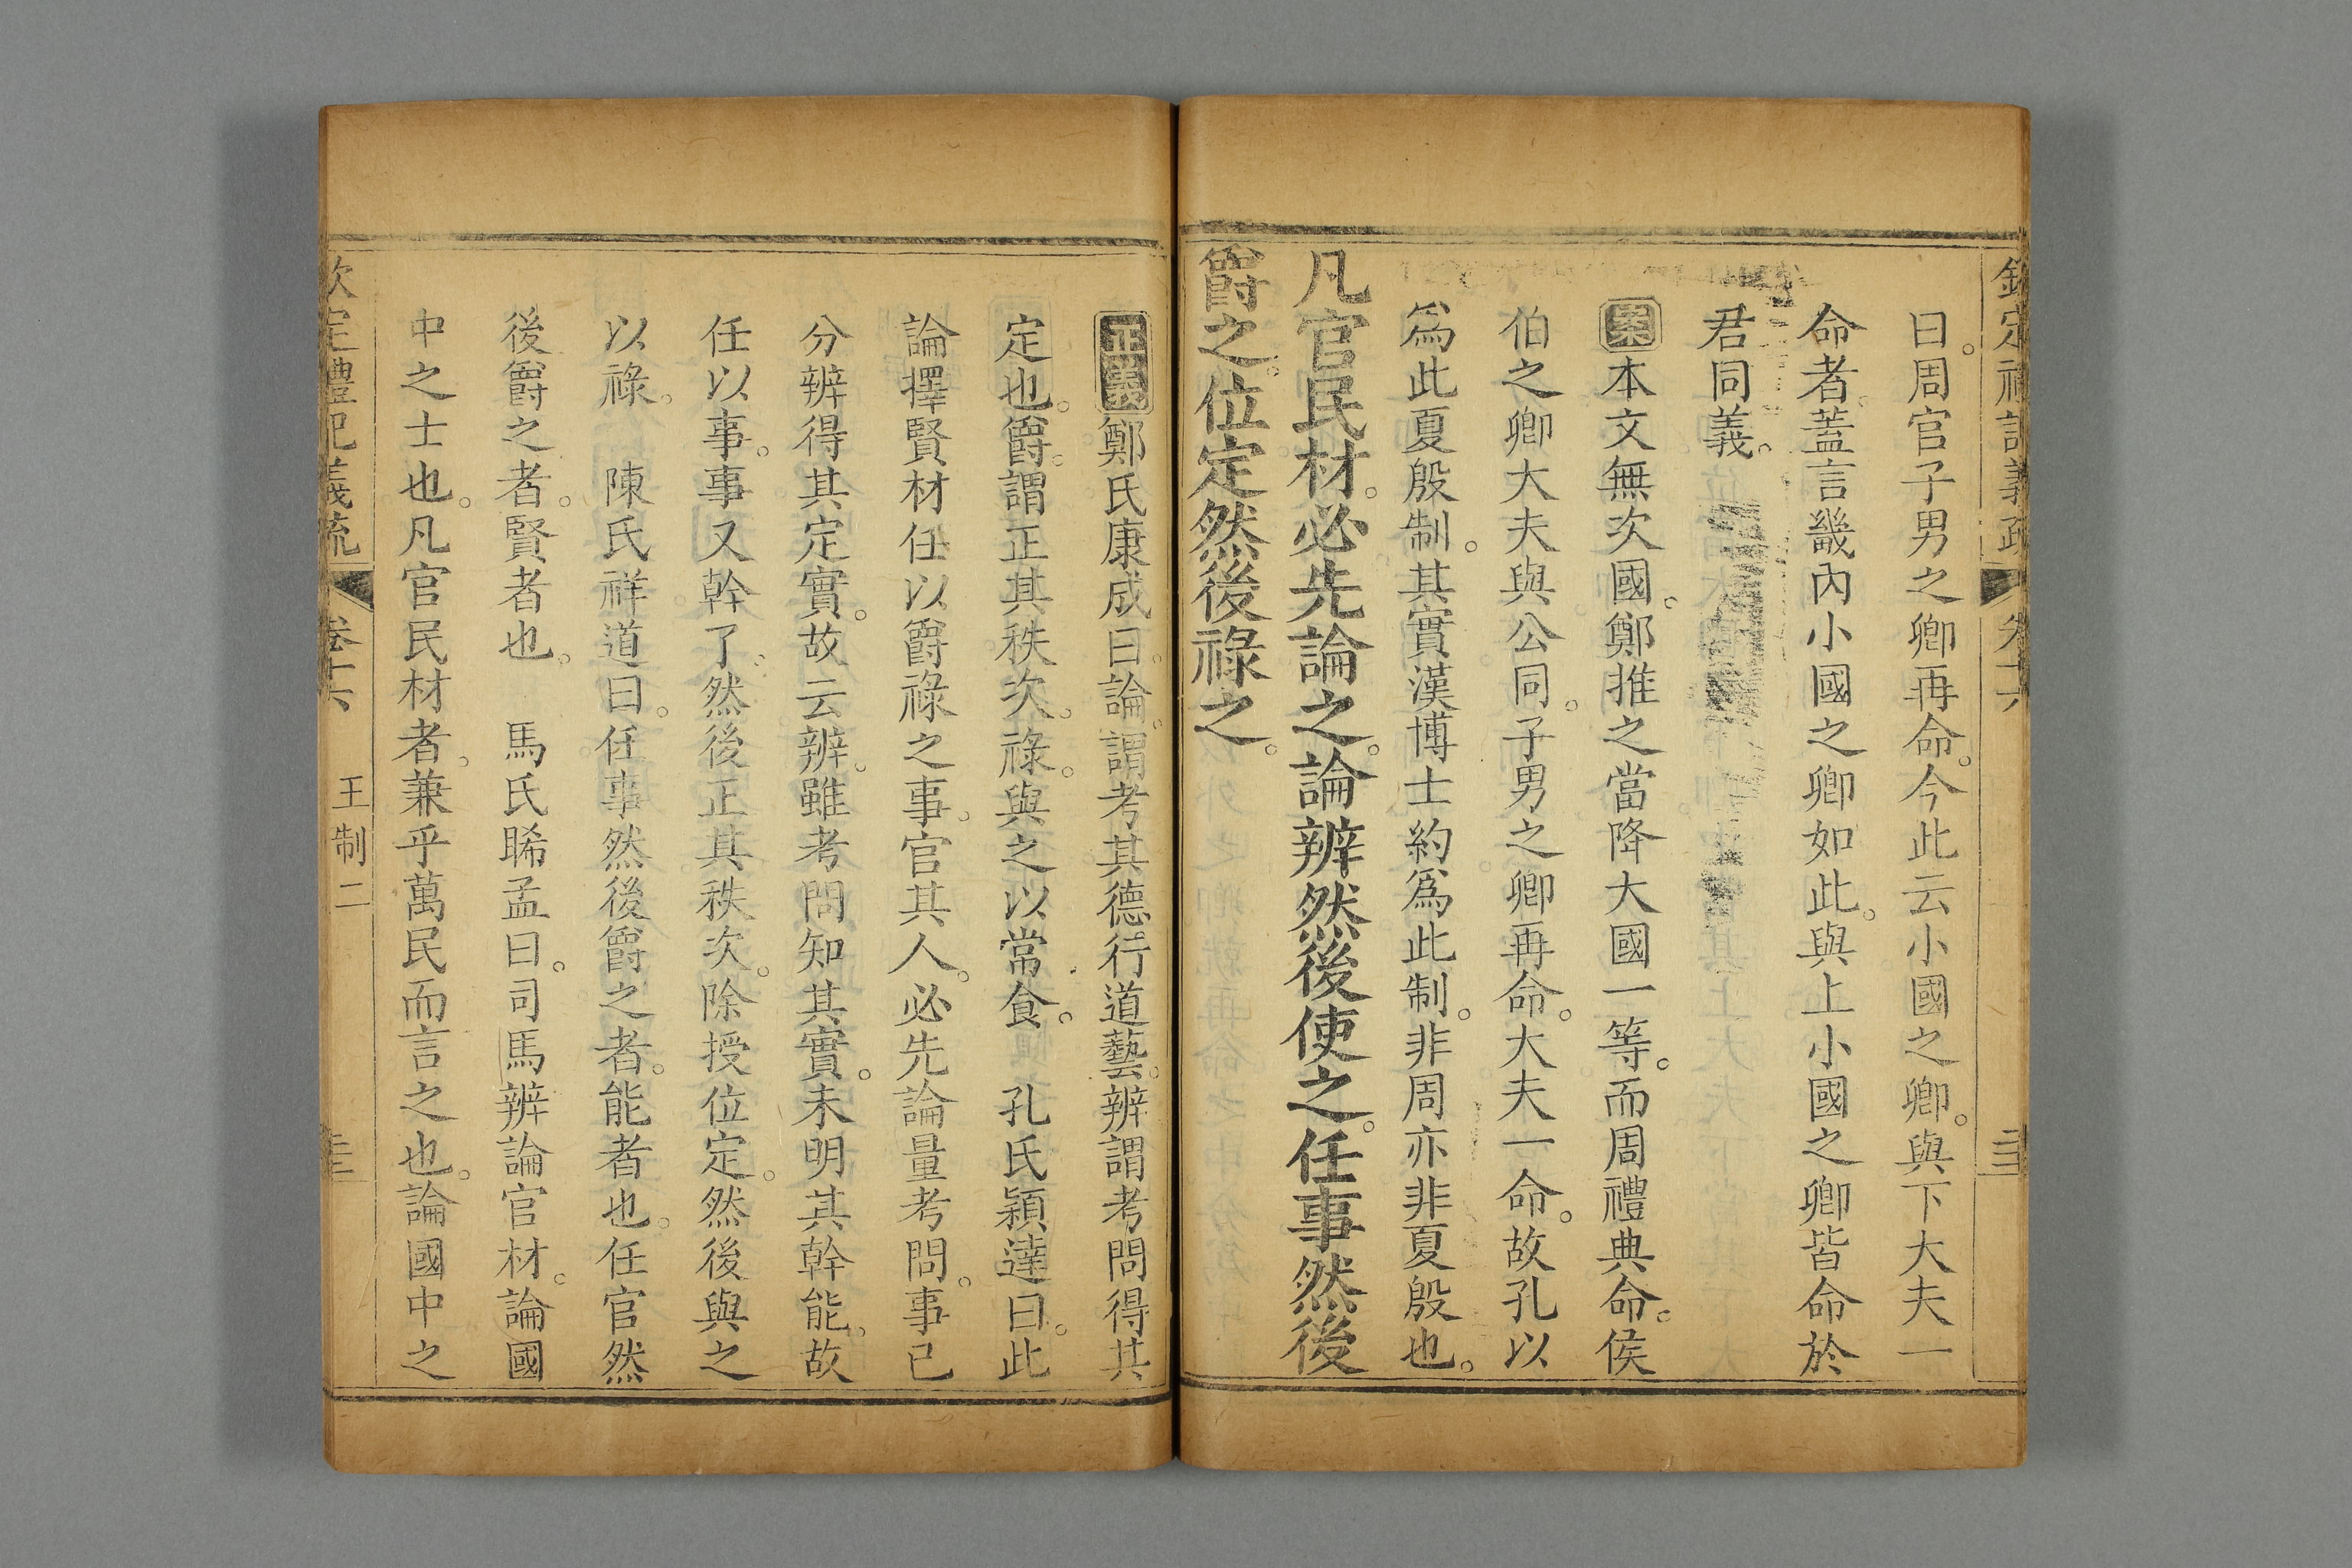 曰。周官子男之卿再命。今此云小國之卿。與下大夫一
命者。蓋言畿內小國之卿如此。與上小國之卿皆命於
君同義。
案本文無次國。鄭推之當降大國一等。而周禮典命。侯
伯之卿大夫與公同。子男之卿再命。大夫一命。故孔以
爲此夏殷制。其實漢博士約爲此制。非周亦非夏殷也。
凡官民材。必先論之。論辨然後使之。任事然後
爵之。位定然後祿之。
正義鄭氏康成曰。論。謂考其德行道藝。辨謂考問得其
定也。爵。謂正其秩次。祿。與之以常食。 孔氏穎達曰。此
論擇賢材任以爵祿之事。官其人。必先論量考問。事已
分辨得其定實。故云辨。雖考問知其實。未明其幹能。故
任以事。事又幹了。然後正其秩次。除授位定。然後與之
以祿。 陳氏祥道曰。任事然後爵之者。能者也。任官然
後爵之者。賢者也。 馬氏晞孟曰。司馬辨論官材。論國
中之士也。凡官民材者。兼乎萬民而言之也。論國中之
欽定禮記義疏 卷十六 王制二